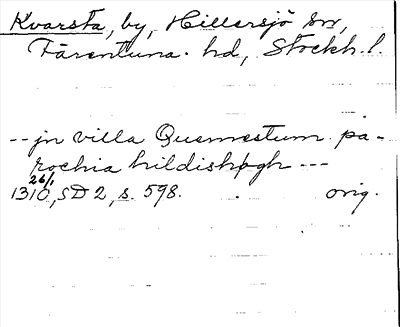 Kvarsta, by, Hillersjö sn,
Färentuna hd, Stockh. l.
-- jn villa Quernestum pa-
rochia hildishøgh ---
26/1
1310, SD 2, s. 598. orig.